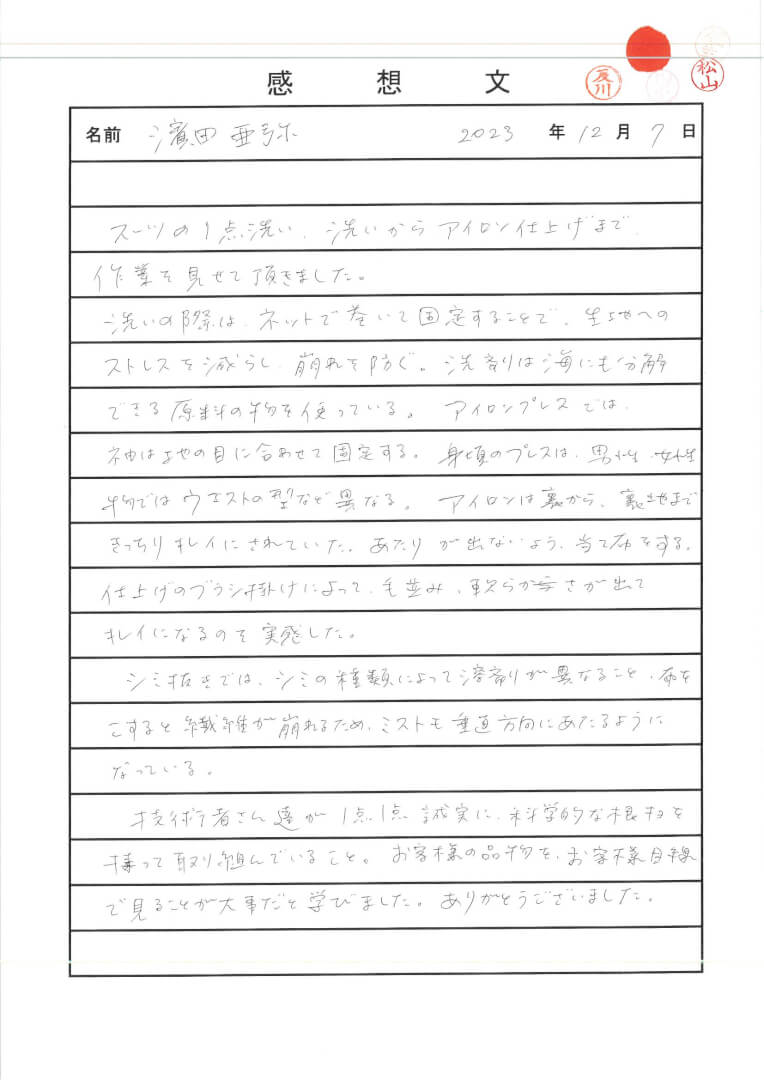 感想文
及川
松山
名前 濱田 亜弥 2023 年 12 月 7 日
スーツの1点洗い、洗いからアイロン仕上げまで、
作業を見せて頂きました。
洗いの際は、ネットで巻いて固定することで、生地への
ストレスを減らし、崩れを防ぐ。洗剤は海にも分解
できる原料の物を使っている。アイロンプレスでは、
袖は地の目に合わせて固定する。身頃のプレスは、男性、女性
物ではウエストの型など異なる。アイロンは裏から、裏地まで
きっちりキレイにされていた。あたりが出ないよう、当て布をする。
仕上げのブラシ掛けによって、毛並み、軟らかさが出て
キレイになるのを実感した。
シミ抜きでは、シミの種類によって溶剤が異なること、布を
こすると繊維が崩れるため、ミストも垂直方向にあたるように
なっている。
技術者さん達が1点1点誠実に、科学的な根拠を
持って取り組んでいること。お客様の品物を、お客様目線
で見ることが大事だと学びました。ありがとうございました。